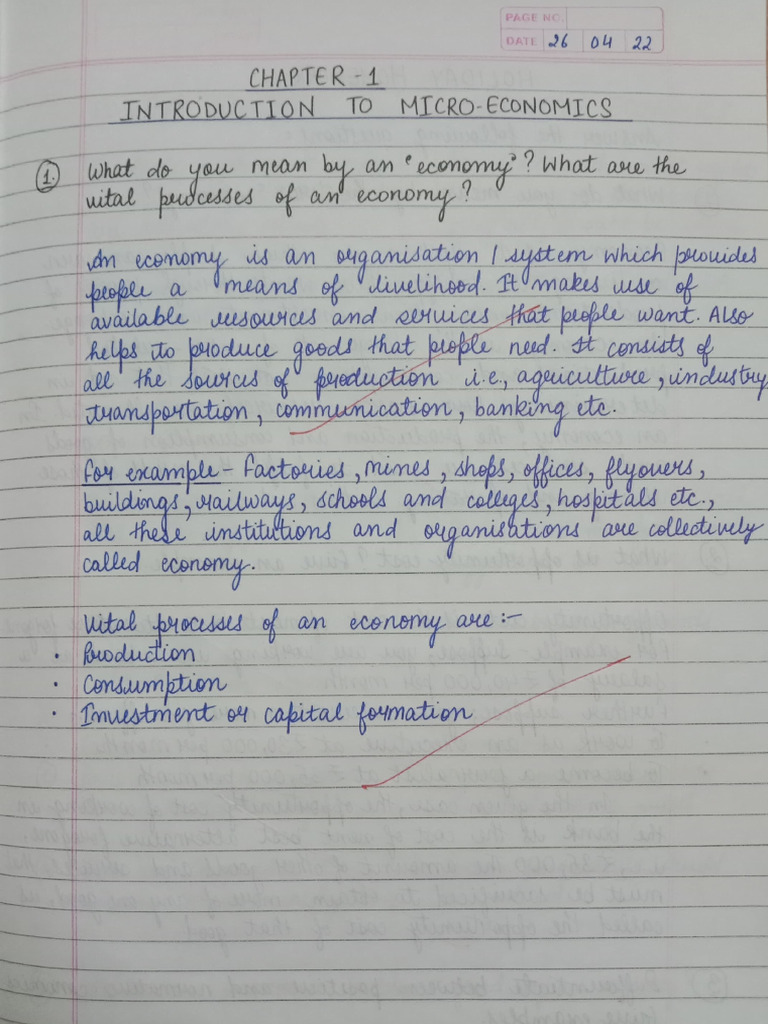 PAGE NO.
DATE 26 04 22
CHAPTER - 1
INTRODUCTION TO MICRO-ECONOMICS
1. What do you mean by an "economy"? What are the
vital processes of an economy?
An economy is an organisation / system which provides
people a means of livelihood. It makes use of
available resources and services that people want. Also
helps to produce goods that people need. It consists of
all the sources of production i.e., agriculture, industry,
transportation, communication, banking etc.
For example - Factories, mines, shops, offices, flyovers,
buildings, railways, schools and colleges, hospitals etc.,
all these institutions and organisations are collectively
called economy.
Vital processes of an economy are :-
• Production
• Consumption
• Investment or capital formation